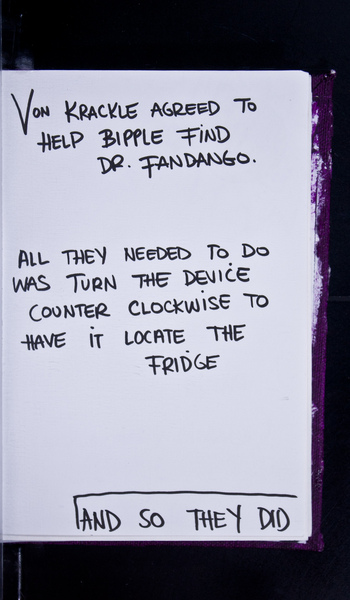 VON KRACKLE AGREED TO
HELP BIPPLE FIND
DR. FANDANGO.
ALL THEY NEEDED TO DO
WAS TURN THE DEVICE
COUNTER CLOCKWISE TO
HAVE IT LOCATE THE
FRIDGE
AND SO THEY DID